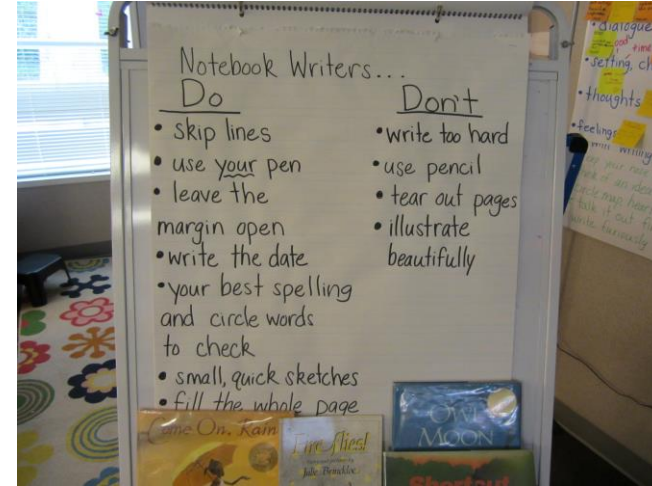 Notebook Writers...
Do
• skip lines
• use your pen
• leave the
margin open
• write the date
• your best spelling
and circle words
to check
• small, quick sketches
• fill the whole page
Don't
• write too hard
• use pencil
• tear out pages
• illustrate
beautifully
• dialogue
• setting, ch
• thoughts
• feelings
talk it out
write furiously
Come On, Rain
Fireflies!
Julie Brinckloe
OWL
MOON
Shortcut